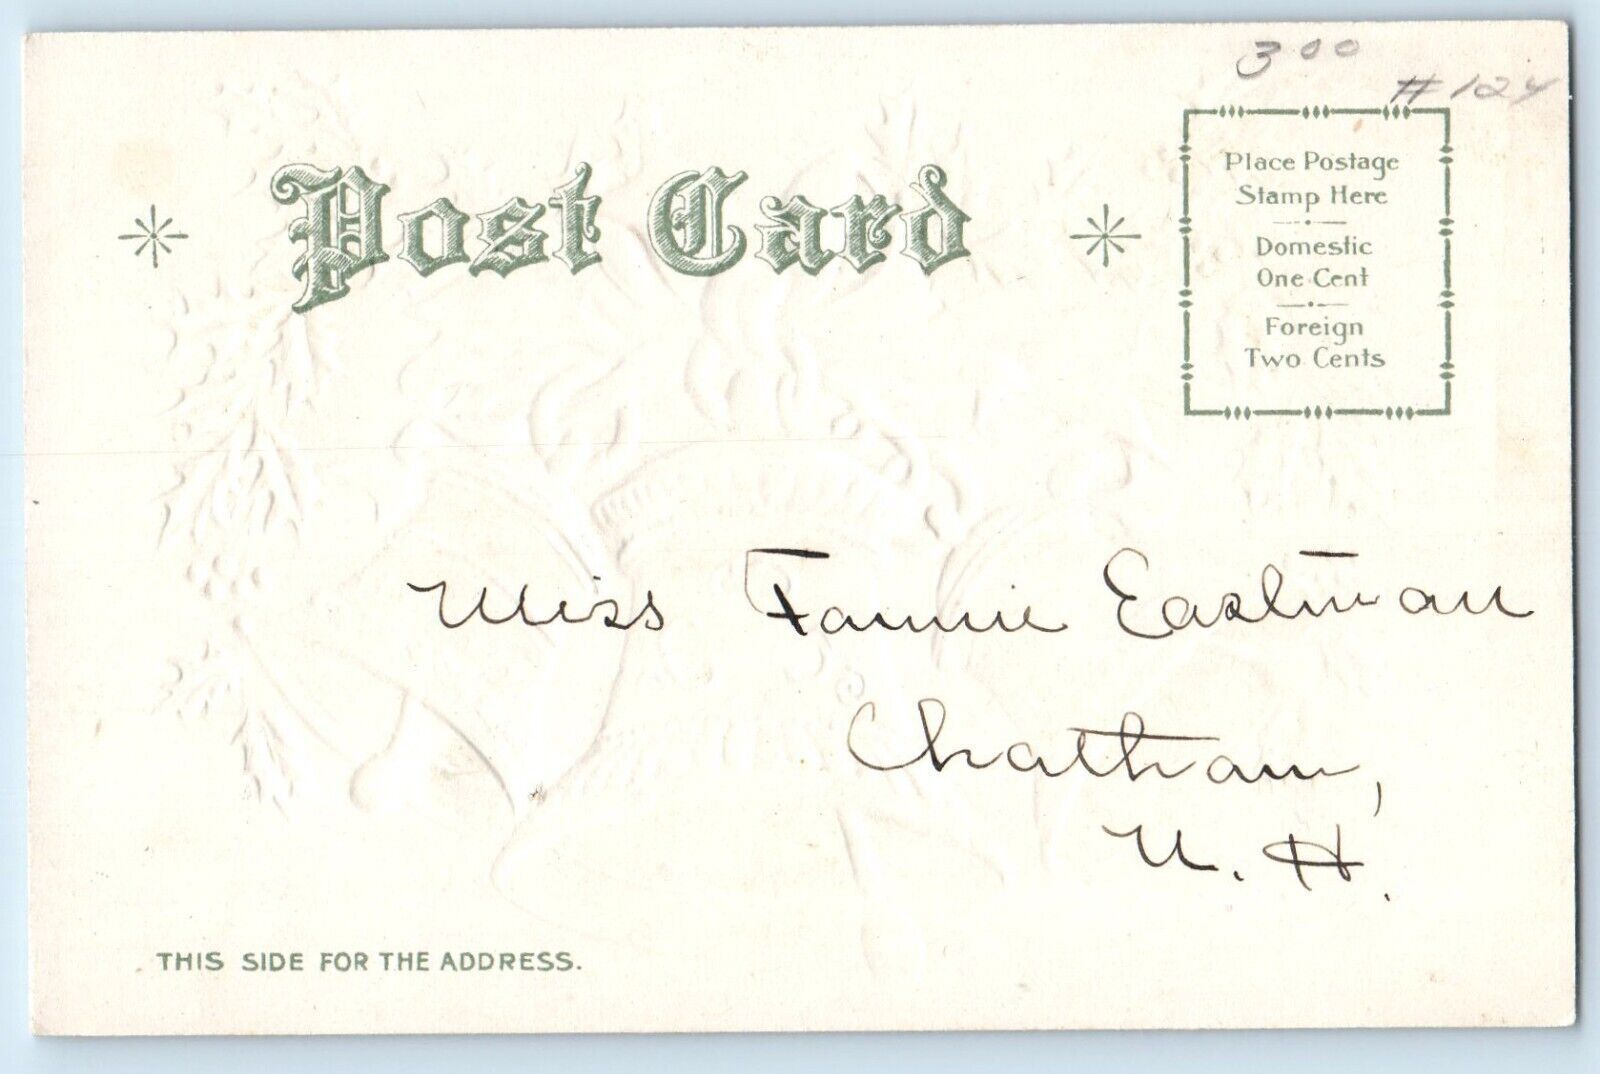 3 00
#124
Post Card
Place Postage
Stamp Here
Domestic
One Cent
Foreign
Two Cents
Miss Fannie Eastman
Chatham,
N. H.
THIS SIDE FOR THE ADDRESS.